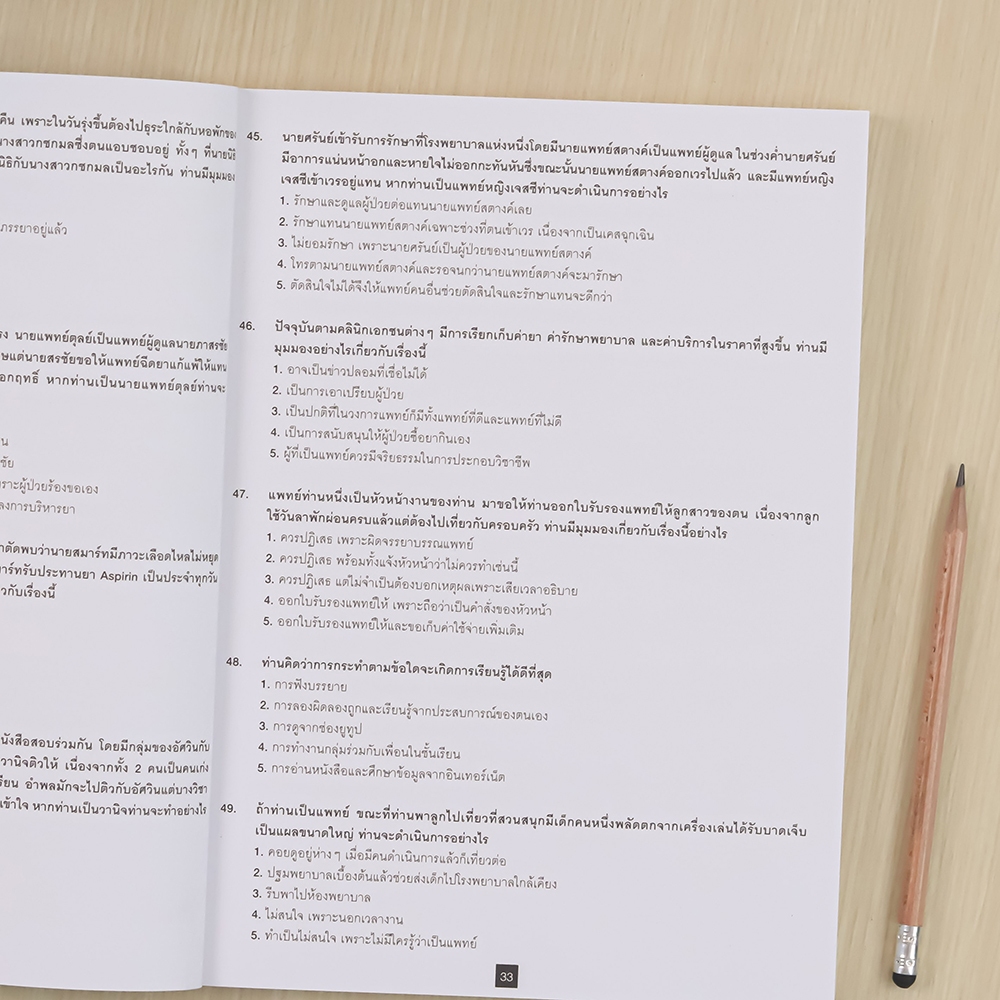 คืน เพราะในวันรุ่งขึ้นต้องไปธุระใกล้กับหอพักของ
นางสาวกชกมลซึ่งตนแอบชอบอยู่ ทั้งๆ ที่นายนิธิ
นิธิกับนางสาวกชกมลเป็นอะไรกัน ท่านมีมุมมอง
ภรรยาอยู่แล้ว
นายแพทย์ตุลย์เป็นแพทย์ผู้ดูแลนายภาสรชัย
แต่นายสรชัยขอให้แพทย์ฉีดยาแก้แพ้ให้แทน
ออกฤทธิ์ หากท่านเป็นนายแพทย์ตุลย์ท่านจะ
น
ชัย
เพราะผู้ป่วยร้องขอเอง
ลงการบริหารยา
ผ่าตัดพบว่านายสมาร์ทมีภาวะเลือดไหลไม่หยุด
มาร์ทรับประทานยา Aspirin เป็นประจำทุกวัน
วกับเรื่องนี้
หนังสือสอบร่วมกัน โดยมีกลุ่มของอัศวินกับ
วานิจติวให้ เนื่องจากทั้ง 2 คนเป็นคนเก่ง
รียน อำพลมักจะไปติวกับอัศวินแต่บางวิชา
เข้าใจ หากท่านเป็นวานิจท่านจะทำอย่างไร
45. นายศรันย์เข้ารับการรักษาที่โรงพยาบาลแห่งหนึ่งโดยมีนายแพทย์สตางค์เป็นแพทย์ผู้ดูแล ในช่วงค่ำนายศรันย์
มีอาการแน่นหน้าอกและหายใจไม่ออกกะทันหันซึ่งขณะนั้นนายแพทย์สตางค์ออกเวรไปแล้ว และมีแพทย์หญิง
เจสซีเข้าเวรอยู่แทน หากท่านเป็นแพทย์หญิงเจสซีท่านจะดำเนินการอย่างไร
1. รักษาและดูแลผู้ป่วยต่อแทนนายแพทย์สตางค์เลย
2. รักษาแทนนายแพทย์สตางค์เฉพาะช่วงที่ตนเข้าเวร เนื่องจากเป็นเคสฉุกเฉิน
3. ไม่ยอมรักษา เพราะนายศรันย์เป็นผู้ป่วยของนายแพทย์สตางค์
4. โทรตามนายแพทย์สตางค์และรอจนกว่านายแพทย์สตางค์จะมารักษา
5. ตัดสินใจไม่ได้จึงให้แพทย์คนอื่นช่วยตัดสินใจและรักษาแทนจะดีกว่า
46. ปัจจุบันตามคลินิกเอกชนต่างๆ มีการเรียกเก็บค่ายา ค่ารักษาพยาบาล และค่าบริการในราคาที่สูงขึ้น ท่านมี
มุมมองอย่างไรเกี่ยวกับเรื่องนี้
1. อาจเป็นข่าวปลอมที่เชื่อไม่ได้
2. เป็นการเอาเปรียบผู้ป่วย
3. เป็นปกติที่ในวงการแพทย์ก็มีทั้งแพทย์ที่ดีและแพทย์ที่ไม่ดี
4. เป็นการสนับสนุนให้ผู้ป่วยซื้อยากินเอง
5. ผู้ที่เป็นแพทย์ควรมีจริยธรรมในการประกอบวิชาชีพ
47. แพทย์ท่านหนึ่งเป็นหัวหน้างานของท่าน มาขอให้ท่านออกใบรับรองแพทย์ให้ลูกสาวของตน เนื่องจากลูก
ใช้วันลาพักผ่อนครบแล้วแต่ต้องไปเที่ยวกับครอบครัว ท่านมีมุมมองเกี่ยวกับเรื่องนี้อย่างไร
1. ควรปฏิเสธ เพราะผิดจรรยาบรรณแพทย์
2. ควรปฏิเสธ พร้อมทั้งแจ้งหัวหน้าว่าไม่ควรทำเช่นนี้
3. ควรปฏิเสธ แต่ไม่จำเป็นต้องบอกเหตุผลเพราะเสียเวลาอธิบาย
4. ออกใบรับรองแพทย์ให้ เพราะถือว่าเป็นคำสั่งของหัวหน้า
5. ออกใบรับรองแพทย์ให้และขอเก็บค่าใช้จ่ายเพิ่มเติม
48. ท่านคิดว่าการกระทำตามข้อใดจะเกิดการเรียนรู้ได้ดีที่สุด
1. การฟังบรรยาย
2. การลองผิดลองถูกและเรียนรู้จากประสบการณ์ของตนเอง
3. การดูจากช่องยูทูป
4. การทำงานกลุ่มร่วมกับเพื่อนในชั้นเรียน
5. การอ่านหนังสือและศึกษาข้อมูลจากอินเทอร์เน็ต
49. ถ้าท่านเป็นแพทย์ ขณะที่ท่านพาลูกไปเที่ยวที่สวนสนุกมีเด็กคนหนึ่งพลัดตกจากเครื่องเล่นได้รับบาดเจ็บ
เป็นแผลขนาดใหญ่ ท่านจะดำเนินการอย่างไร
1. คอยดูอยู่ห่างๆ เมื่อมีคนดำเนินการแล้วก็เที่ยวต่อ
2. ปฐมพยาบาลเบื้องต้นแล้วช่วยส่งเด็กไปโรงพยาบาลใกล้เคียง
3. รีบพาไปห้องพยาบาล
4. ไม่สนใจ เพราะนอกเวลางาน
5. ทำเป็นไม่สนใจ เพราะไม่มีใครรู้ว่าเป็นแพทย์
33